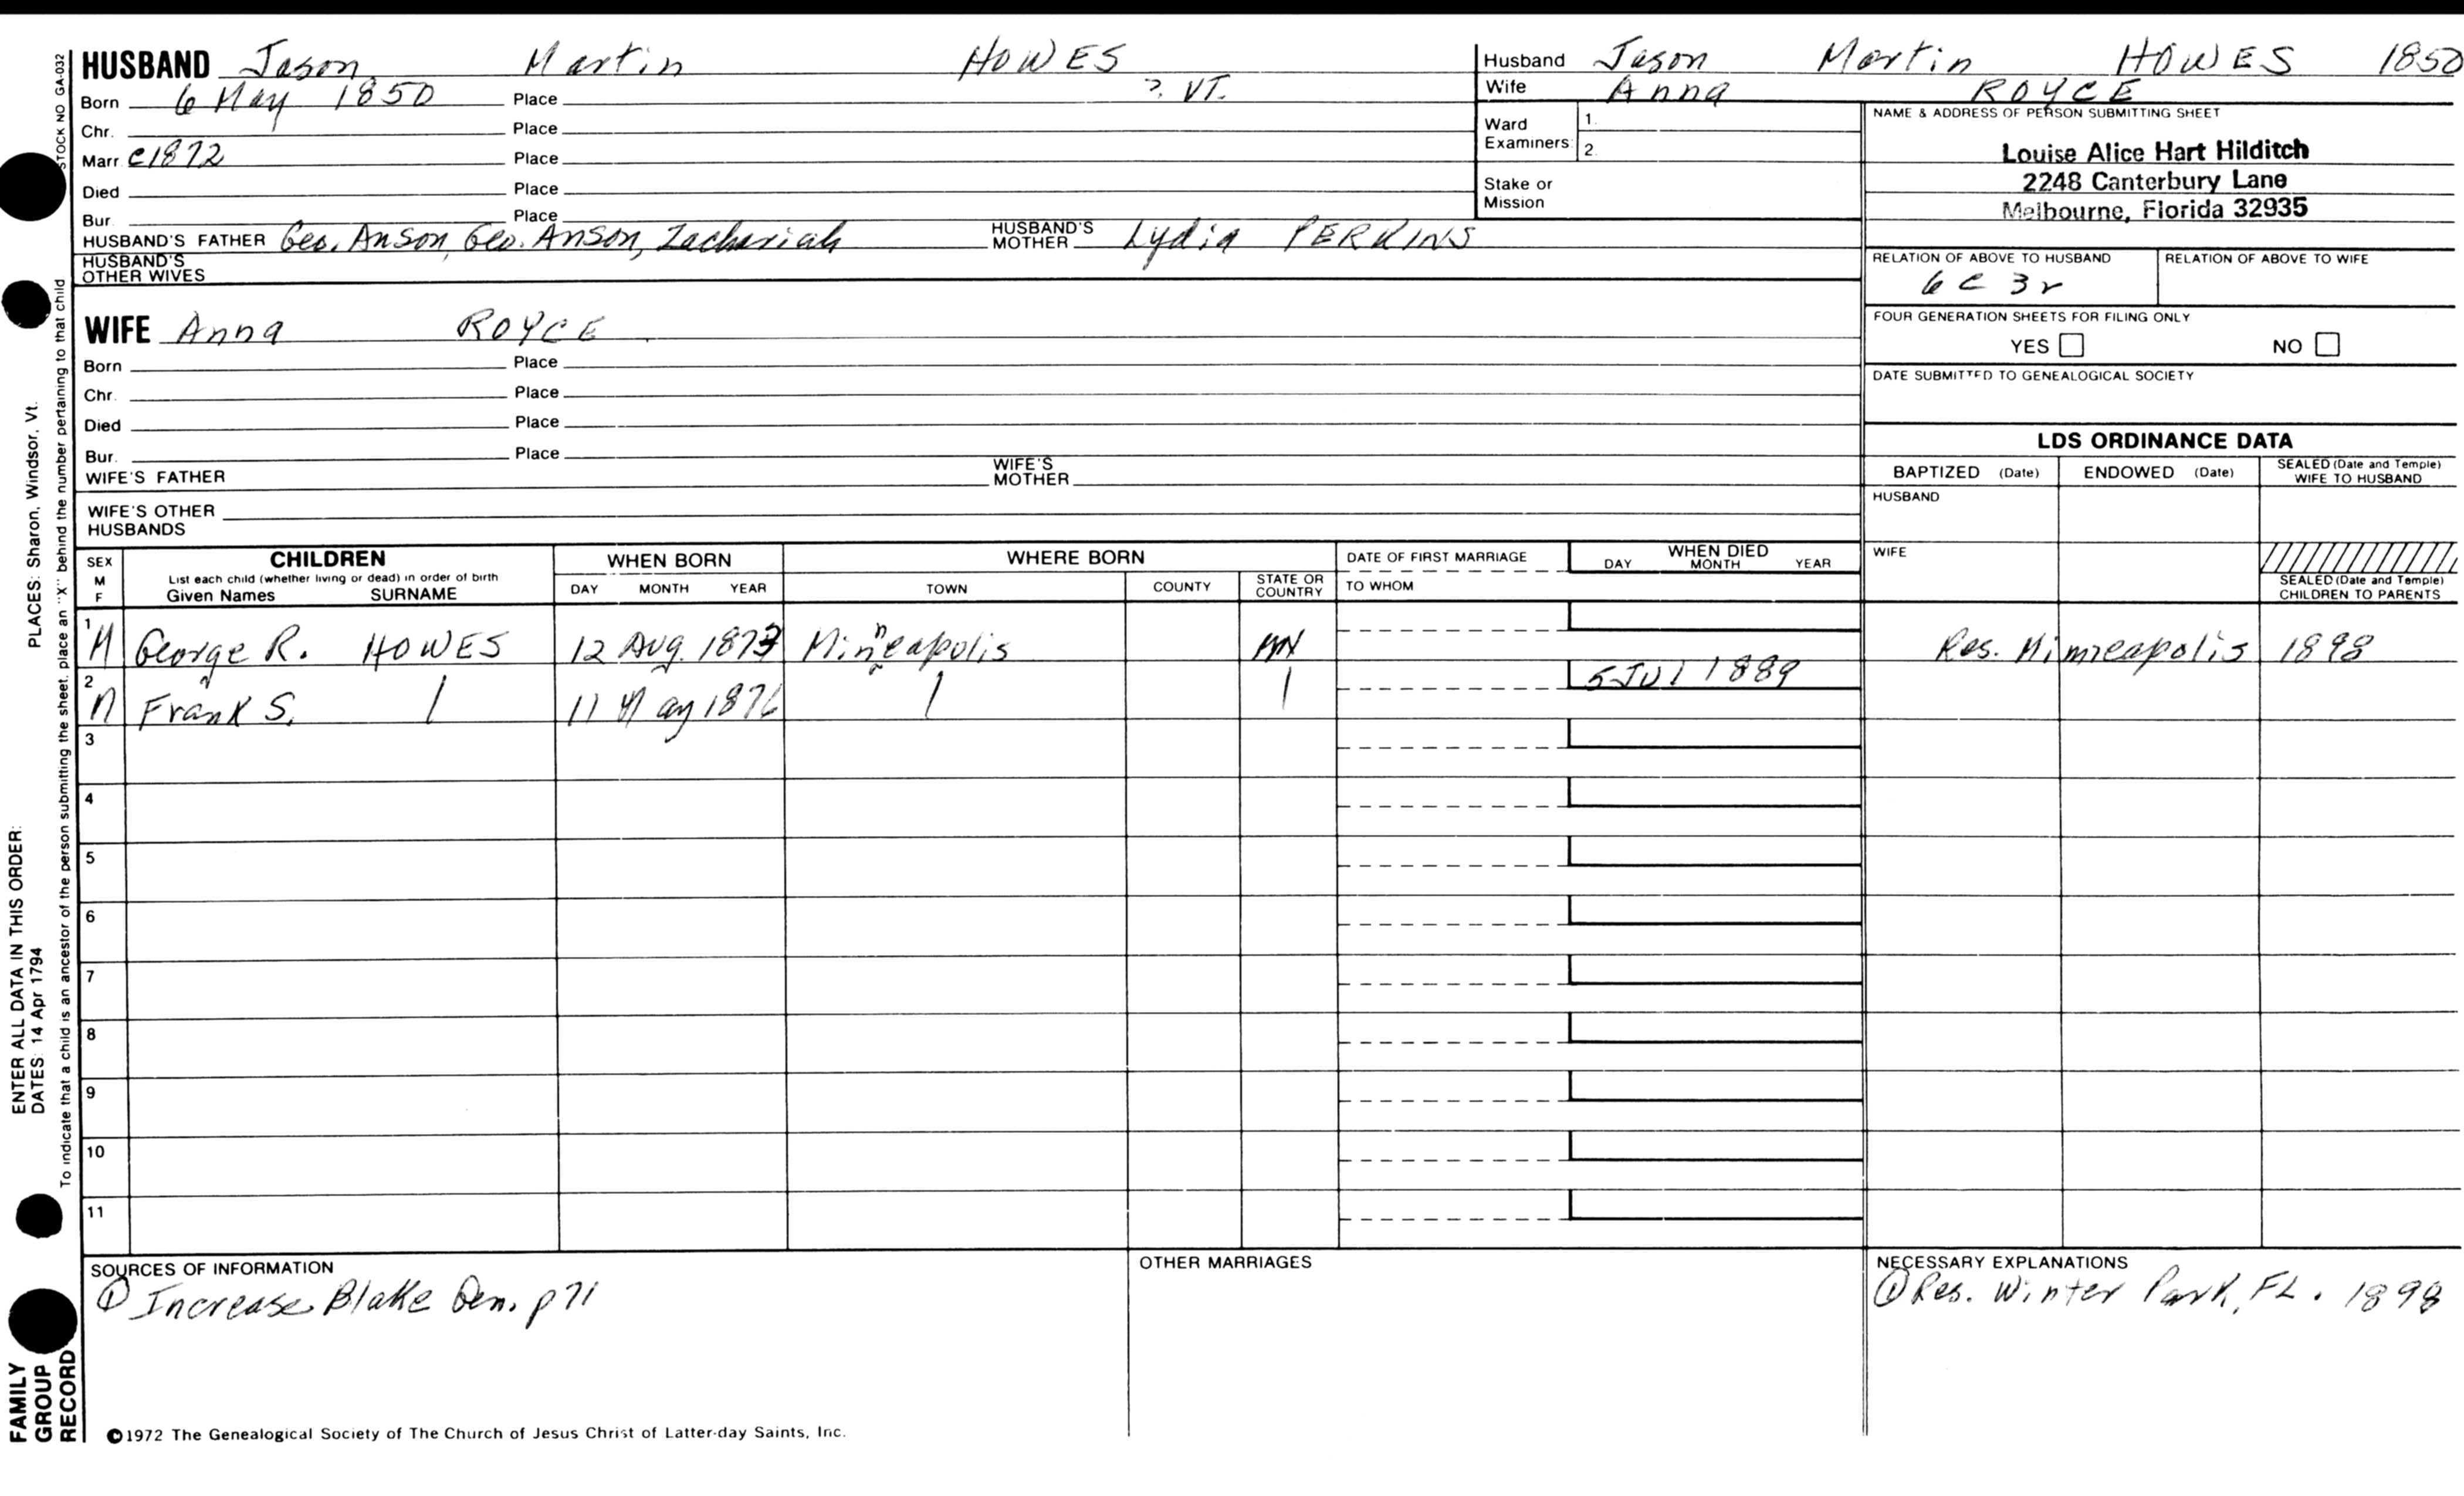 HUSBAND Jason Martin HOWES
Born 6 May 1850 Place ? VT.
Chr. Place
Marr. c1872 Place
Died Place
Bur. Place
HUSBAND'S FATHER Geo. Anson, Geo. Anson, Zachariah HUSBAND'S MOTHER Lydia PERKINS
HUSBAND'S OTHER WIVES
WIFE Anna ROYCE
Born Place
Chr. Place
Died Place
Bur. Place
WIFE'S FATHER WIFE'S MOTHER
WIFE'S OTHER HUSBANDS
Husband Jason Martin HOWES 1850
Wife Anna ROYCE
Ward Examiners: 1. 2.
Stake or Mission
NAME & ADDRESS OF PERSON SUBMITTING SHEET
Louise Alice Hart Hilditch
2248 Canterbury Lane
Melbourne, Florida 32935
RELATION OF ABOVE TO HUSBAND RELATION OF ABOVE TO WIFE
6 C 3r
FOUR GENERATION SHEETS FOR FILING ONLY
YES NO
DATE SUBMITTED TO GENEALOGICAL SOCIETY
LDS ORDINANCE DATA
BAPTIZED (Date) ENDOWED (Date) SEALED (Date and Temple) WIFE TO HUSBAND
HUSBAND
WIFE
SEALED (Date and Temple) CHILDREN TO PARENTS
SEX M F CHILDREN WHEN BORN WHERE BORN DATE OF FIRST MARRIAGE WHEN DIED
List each child (whether living or dead) in order of birth
Given Names SURNAME DAY MONTH YEAR TOWN COUNTY STATE OR COUNTRY TO WHOM DAY MONTH YEAR
1 M George R. HOWES 12 Aug. 1873 Minneapolis MN Res. Minneapolis 1898
2 M Frank S. 11 May 1876 5 Jul 1889
3
4
5
6
7
8
9
10
11
SOURCES OF INFORMATION
① Increase Blake Gen. p 71
OTHER MARRIAGES
NECESSARY EXPLANATIONS
① Res. Winter Park, FL. 1898
©1972 The Genealogical Society of The Church of Jesus Christ of Latter-day Saints, Inc.
STOCK NO GA-032
To indicate that a child is an ancestor of the person submitting the sheet, place an "X" behind the number pertaining to that child
ENTER ALL DATA IN THIS ORDER:
DATES: 14 Apr 1794 PLACES: Sharon, Windsor, Vt.
FAMILY
GROUP
RECORD